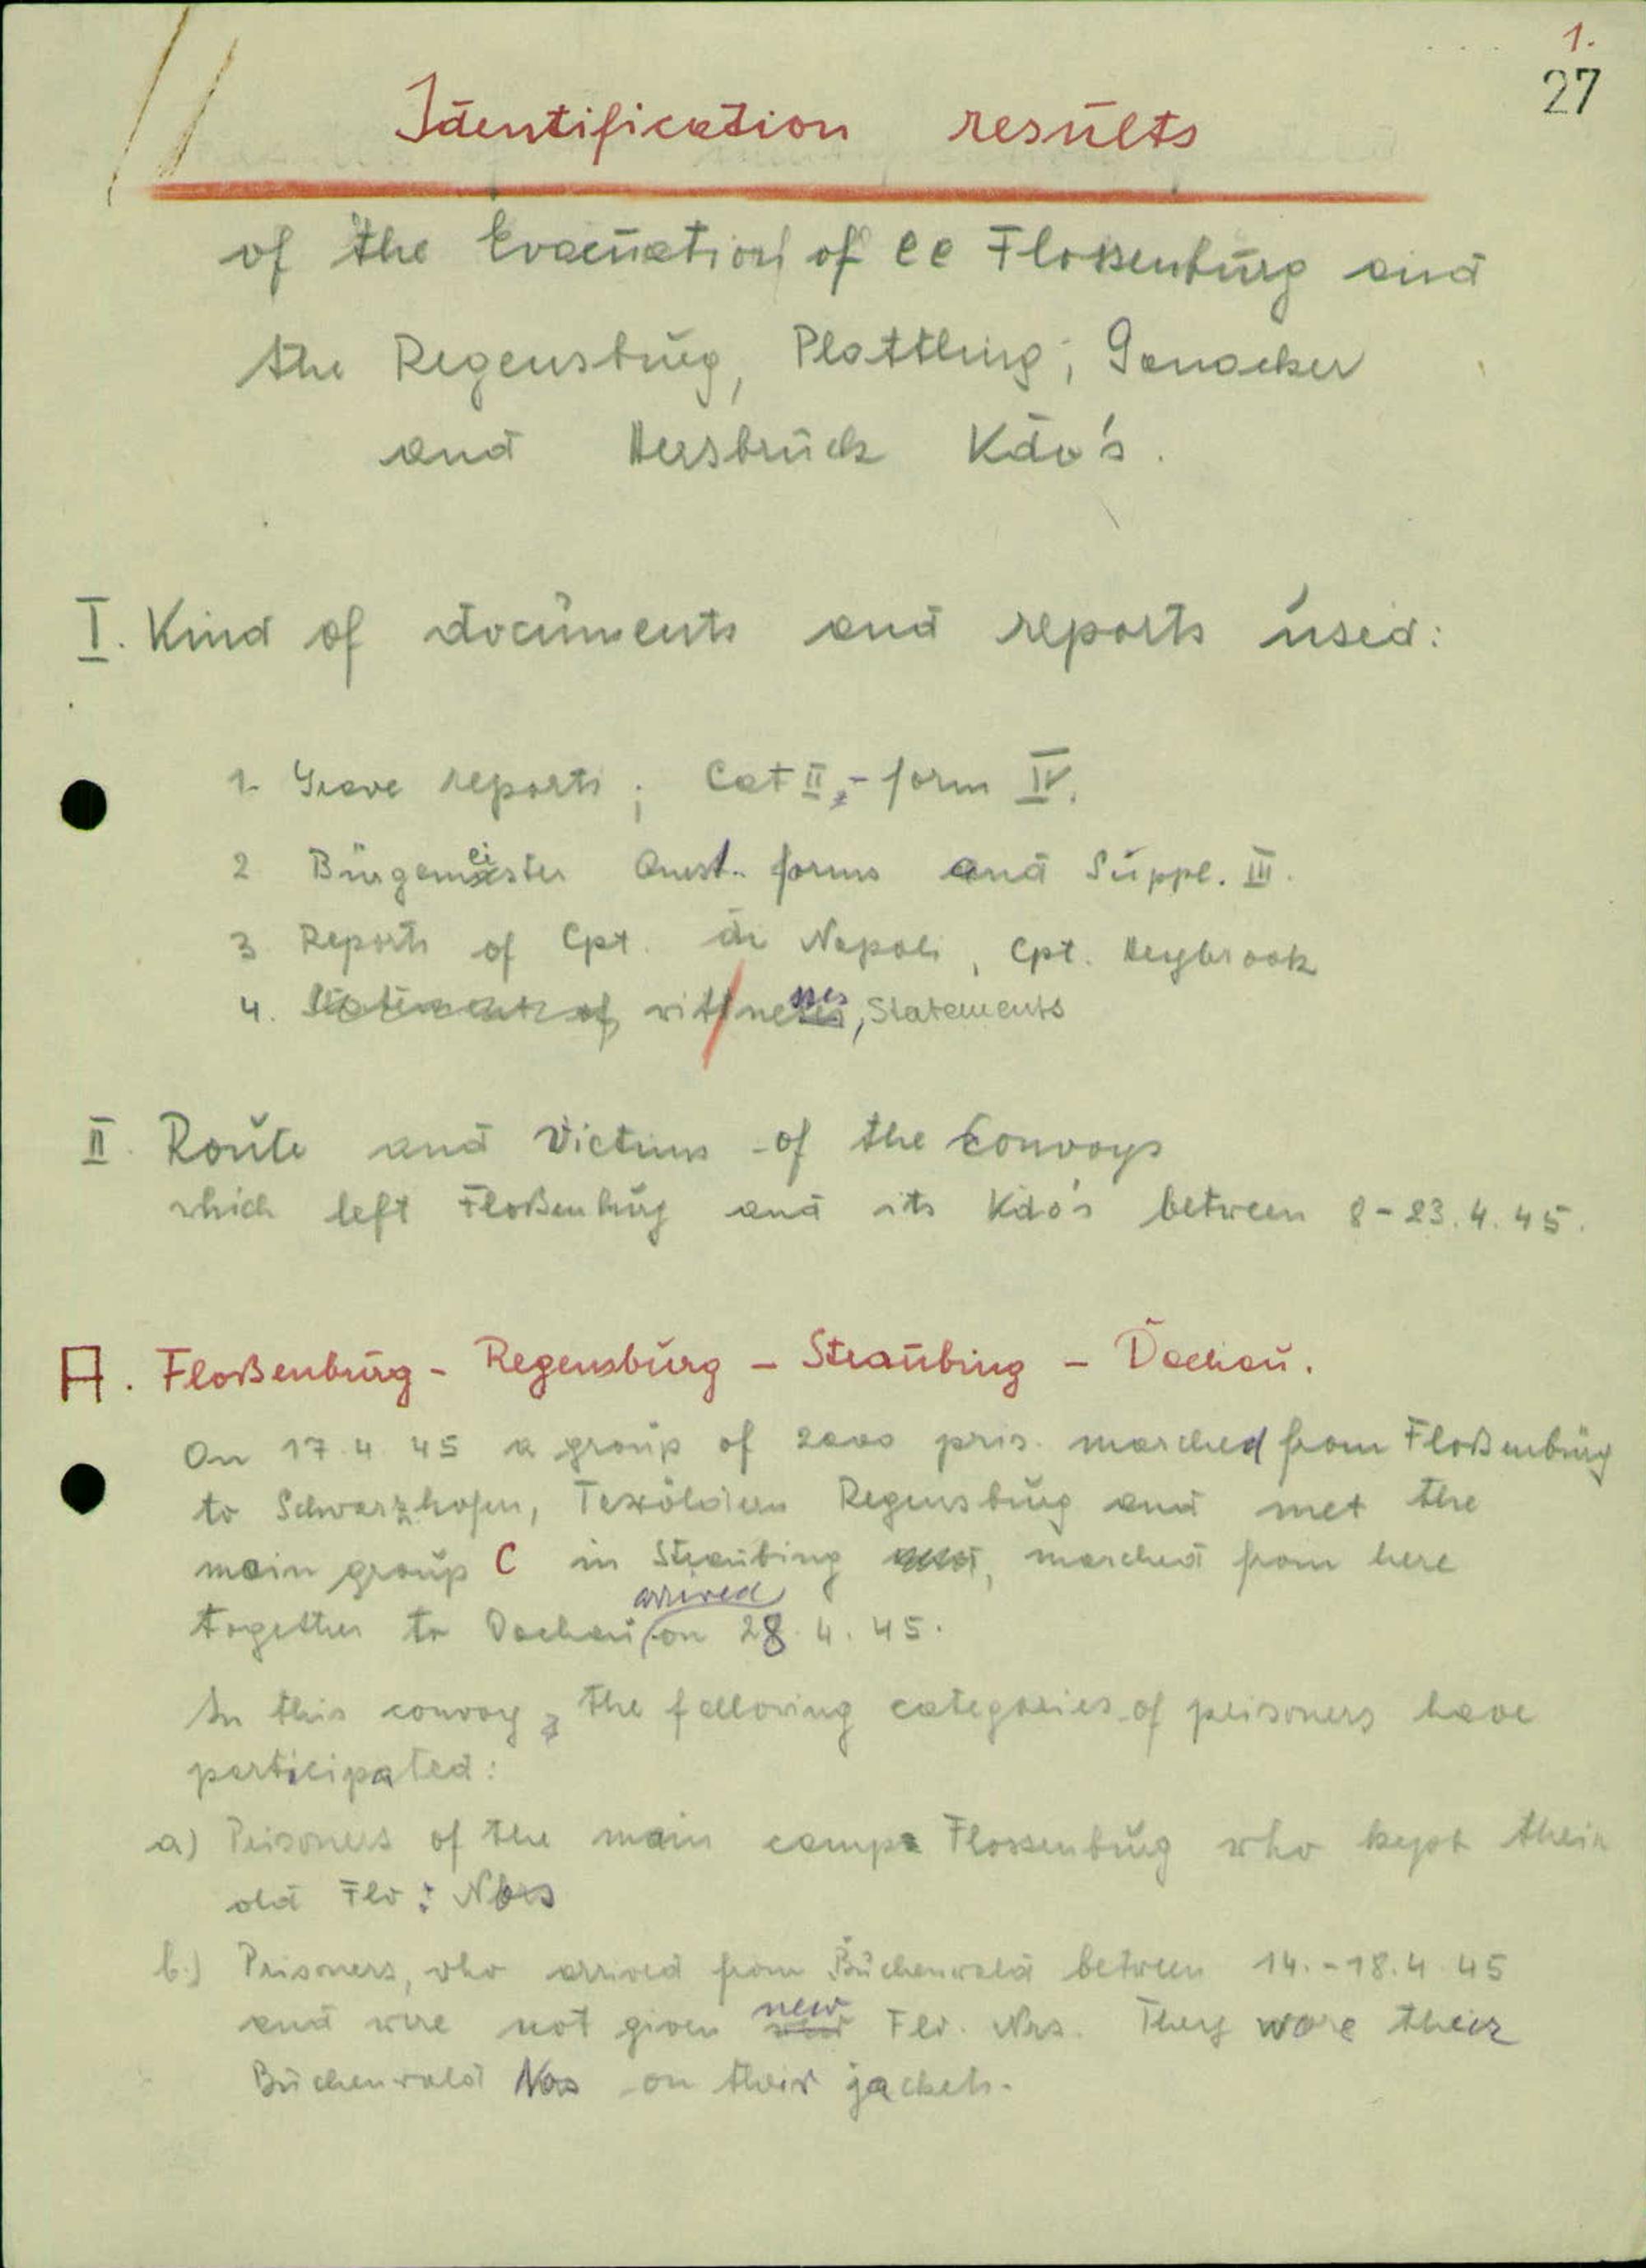 1.
27
Identification results
of the Evacuation of CC Flossenbürg and
the Regensburg, Plattling, Ganacker
and Hersbruck Kdo's.
I. Kind of documents and reports used:
1. Grave reports; Cat II, - form IV.
2 Bürgermeister Quest. forms and Suppl. III.
3 Reports of Cpt. di Napoli, Cpt. Heybrook
4. Statements of wittnesses, Statements
II. Route and Victims of the Convoys
which left Floßenbürg and its Kdo's between 8-23.4.45.
A. Floßenbürg - Regensburg - Straubing - Dachau.
On 17.4.45 a group of 2000 pris. marched from Floßenbürg
to Schwarzhofen, Texöldern Regensburg and met the
main group C in Straubing and, marched from here
arrived
together to Dachau on 28.4.45.
In this convoy, the following categories of prisoners have
participated:
a) Prisoners of the main camp Flossenbürg who kept their
old Flo: Nbrs
b.) Prisoners, who arrived from Buchenwald between 14.-18.4.45
and were not given new Flo. Nrs. They wore their
Buchenwald Nos on their jackets.